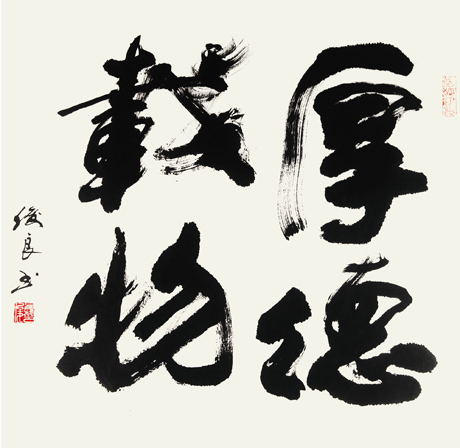 厚德
載物
俊良书